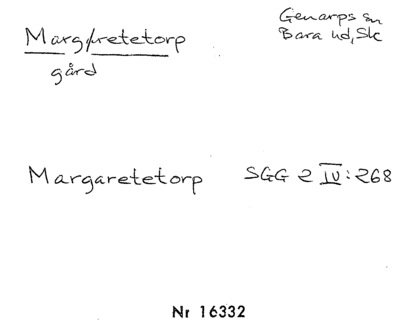 Margretetorp
gård
Genarps sn
Bara hd, Sk
Margaretetorp SGG 2 IV:268
Nr 16332